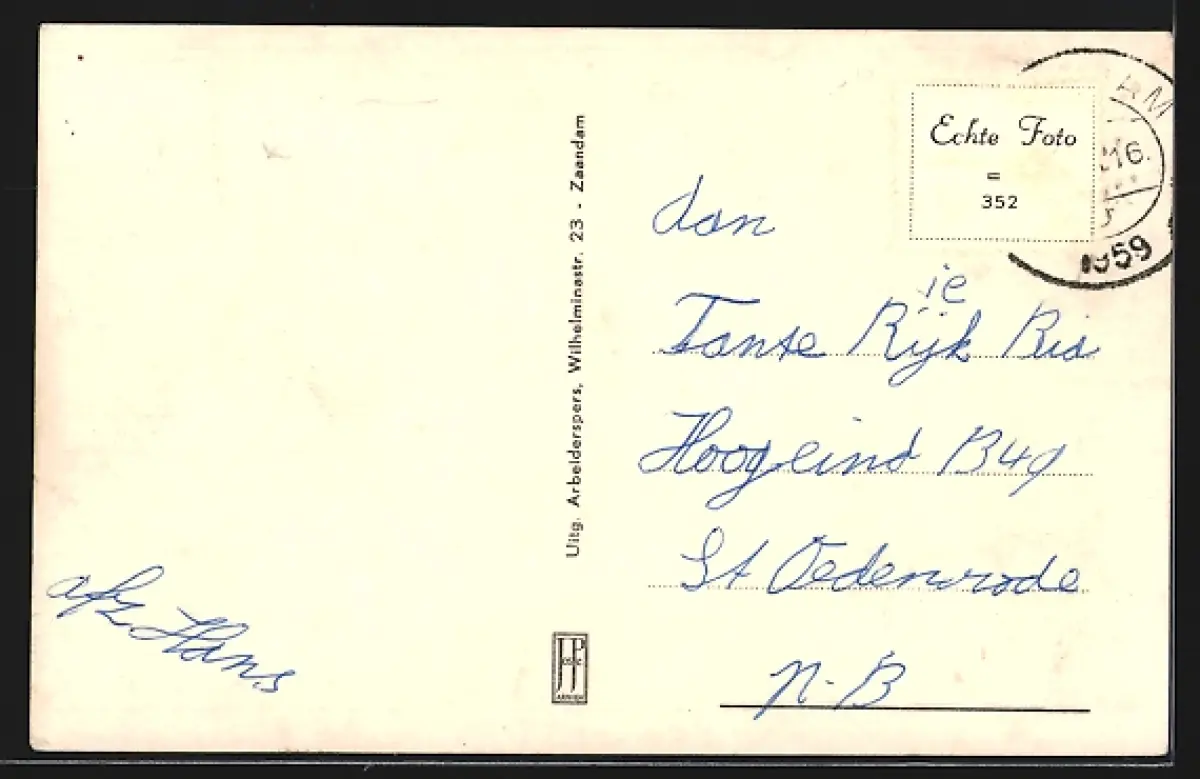 Echte Foto
=
352
AM
16.
1959
dan
ie
Tante Rijk Bis
Hoogeind B49
St Oedenrode
N-B
afz Hans
Uitg. Arbeiderspers, Wilhelminastr. 23 - Zaandam
JP
ARNHEM